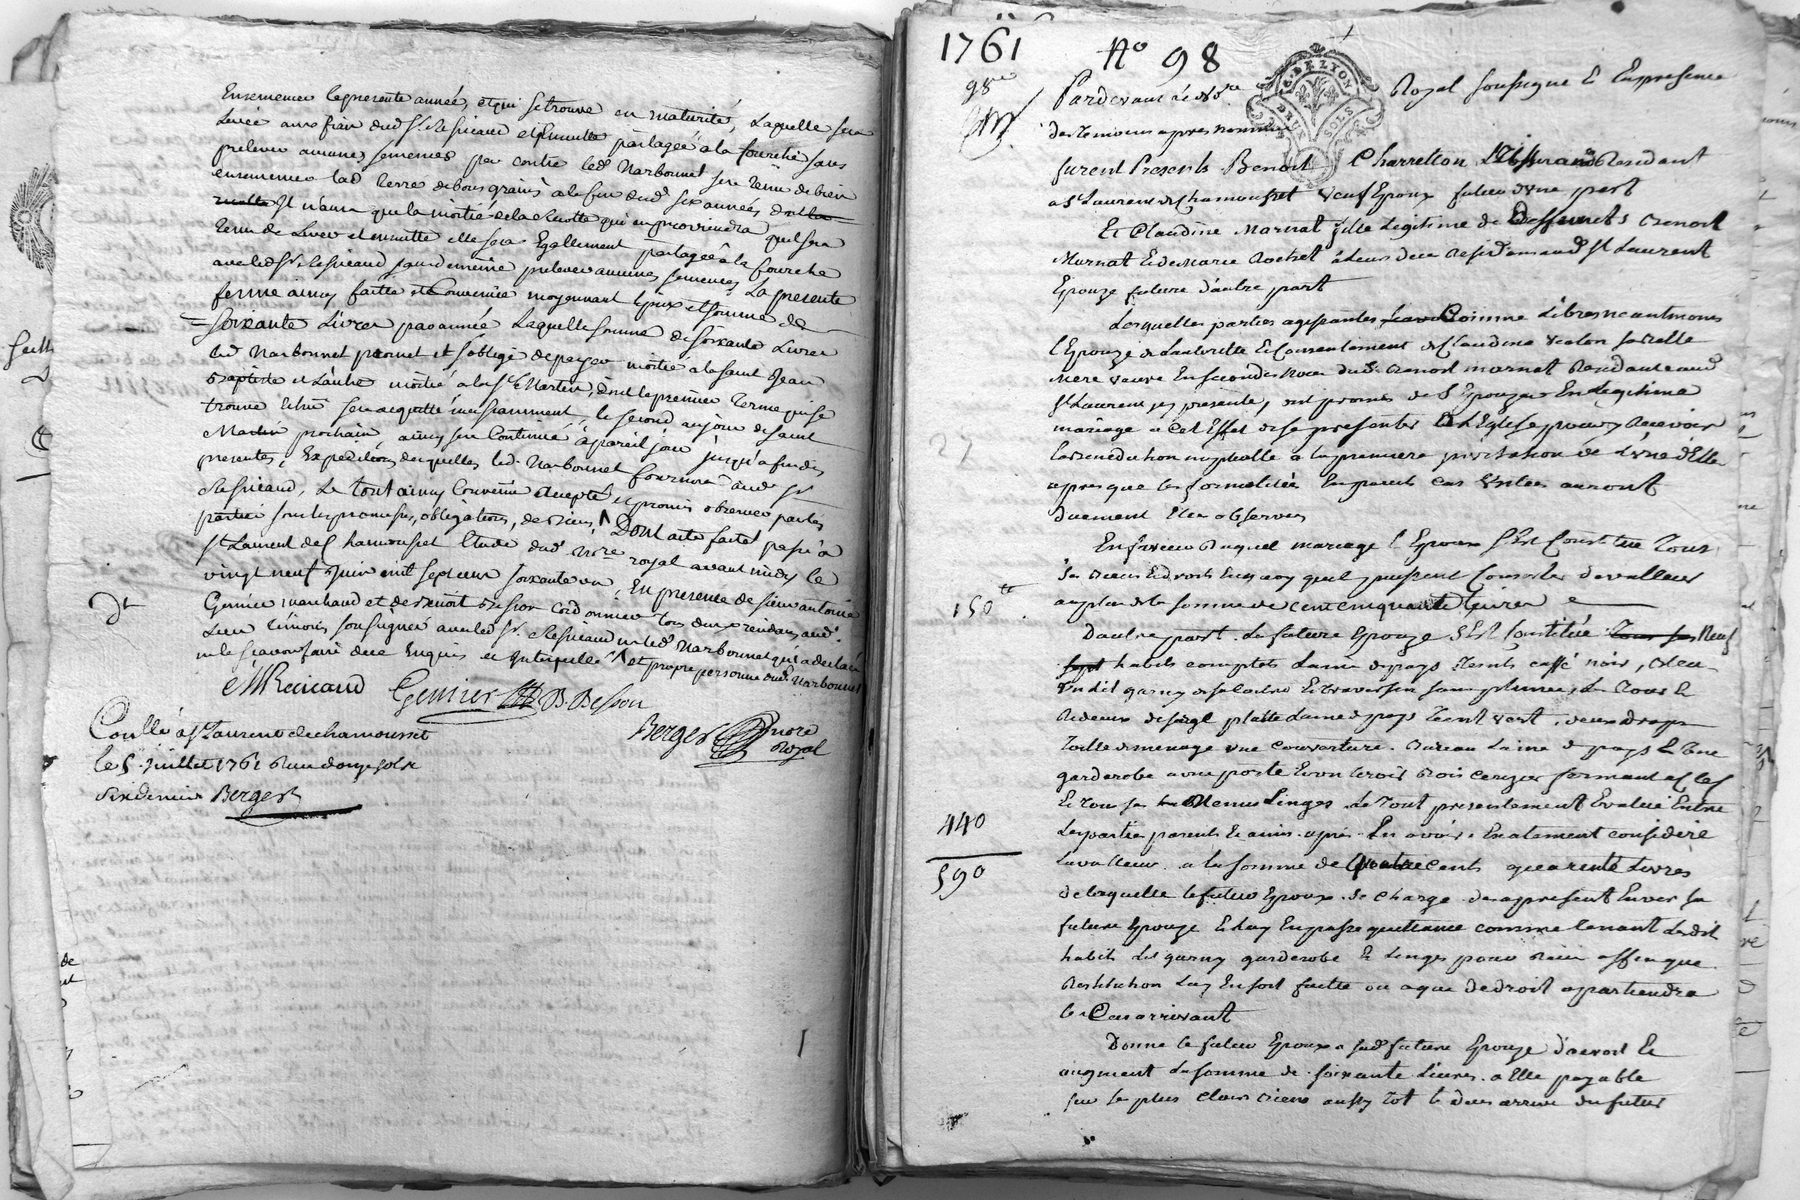 Ensemencée la presente année, et qui se trouve en maturité, Laquelle sera
Levée aux frais dud. Sr. Resicaud et ensuitte partagée a la fourche sans
prelever aucunes semences par contre led. Narbonnet sera tenu de bien
ensemencer lad. terre de bons grains a la fin desd. six années
Il n'aura que la moitié de la recolte qui en proviendra quil sera
tenu de Lever et ensuitte elle sera Egallement partagée a la fourche
avec led. Sr. Resicaud sans de même prelever aucunes semences La presente
ferme ainsy faitte et Convenüe moyennant le prix et somme de
soixante Livres par année Laquelle somme de soixante Livres
led. Narbonnet promet et s'oblige de payer moitié a la saint Jean
Baptiste et L'autre moitié a la St. Martin, dont le premier terme qui se
trouve Echu sera acquitté incessamment, le second au jour de saint
Martin prochain, ainsy sera Continüé a pareil jour jusqu'a fin des
presentes, Expedition desquelles led. Narbonnet fournira aud. Sr.
Resicaud, Le tout ainsy Convenu accepté et promis observer par les
parties sous les promesses, obligations, de biens, Dont acte fait et passé a
St. Laurent de Chamousset Etude dud. No.re royal avant midy le
vingt neuf Juin mil sept cent soixante un, En presence de sieur antoine
Genier marchand et de Benoit Besson Cordonnier tous deux residans aud.
Lieu temoins soussignés avec led. Sr. Resicaud non led. Narbonnet qui a declaré
ne le scavoir faire de ce Enquis et Interpellé et propre personne dud. Narbonnet
Resicaud Genier B. Besson
Berger no.re Royal
Conllé a St. Laurent de chamousset
le 5. Juillet 1761 Reçu douze sols
six deniers Berger
1761 No 98
Pardevant le No.re Royal soussigné & En presence
des temoins apres nommés
furent Presents Benoit Charretton Tisserand Residant
a St. Laurent de Chamousset veuf Epoux futur d'une part
Et Claudine Marnat fille Legitime de Deffunts Benoit
Marnat & de Marie Rochet a Leur decs Residens aud. St. Laurent
Epouze future d'autre part
Lesquelles parties agissantes Comme Libres neantmoins
l'Epouze de L'autorité & Consentement de Claudine
mere veuve En secondes noces dud. Benoit marnat Residante aud.
St. Laurent icy presente, ont promis de S'Epouzer En Legitime
mariage a Cet Effet de se presenter a L'Eglise pour y Recevoir
La benediction nuptialle a la premiere invitation de L'une d'Elles
apres que les formalitées En pareils Cas usitées auront
duement Eté observées
En faveur duquel mariage l'Epoux S'Est Constitué Tous
ses Biens & droits En quoy quils puissent Consister de valleur
au plus de la somme de cent cinquante Livres
150 tt
D'autre part. La future Epouze S'Est Constituée Neuf
habits complets Laine de pays teints caffé noir, bleu
Un Lit garny de sa & traversin sans plume, Le Tour &
Rideaux de serge platte Laine de pays teint vert, deux draps
Toille de menage une couverture. Bureau Laine de pays & Une
garderobe a une porte & un tiroir Bois Cerizer fermant a Clef
& Tous ses Menus Linges. Le Tout presentement Evalué Entre
Les parties parents & amis. apres. Les avoir Exatement consideré
La valleur. a la somme de Quatre cents quarente Livres
440
590
de laquelle le futur Epoux. Se Charge. des apresent Envers sa
future Epouze & Luy En passe quittance comme tenant Lesdits
habits Lit garny garderobe & Linges pour Rëin affin que
Restitution Luy En soit faitte ou a qui de droit apartiendra
le Cas arrivant
Donne le futur Epoux a sad. future Epouze d'accroit &
augment La somme de soixante Livres. a Elle payable
sur Les plus clairs Biens aussy tot le deces arrivé du futur